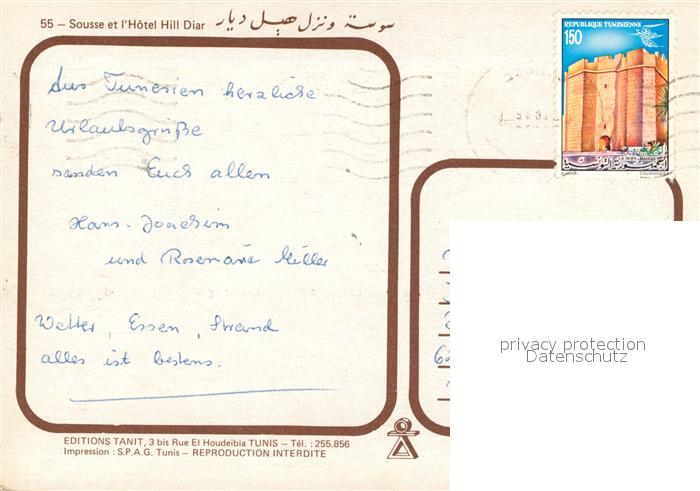 55 – Sousse et l'Hôtel Hill Diar سوسة ونزل هيل ديار
REPUBLIQUE TUNISIENNE
150
الجمهورية التونسية
Aus Tunesien herzliche
Urlaubsgrüße
senden Euch allen
Hans-Joachim
und Rosemarie Müller
Wetter, Essen, Strand
alles ist bestens.
privacy protection
Datenschutz
EDITIONS TANIT, 3 bis Rue El Houdeïbia TUNIS – Tél. : 255.856
Impression : S.P.A.G. Tunis – REPRODUCTION INTERDITE